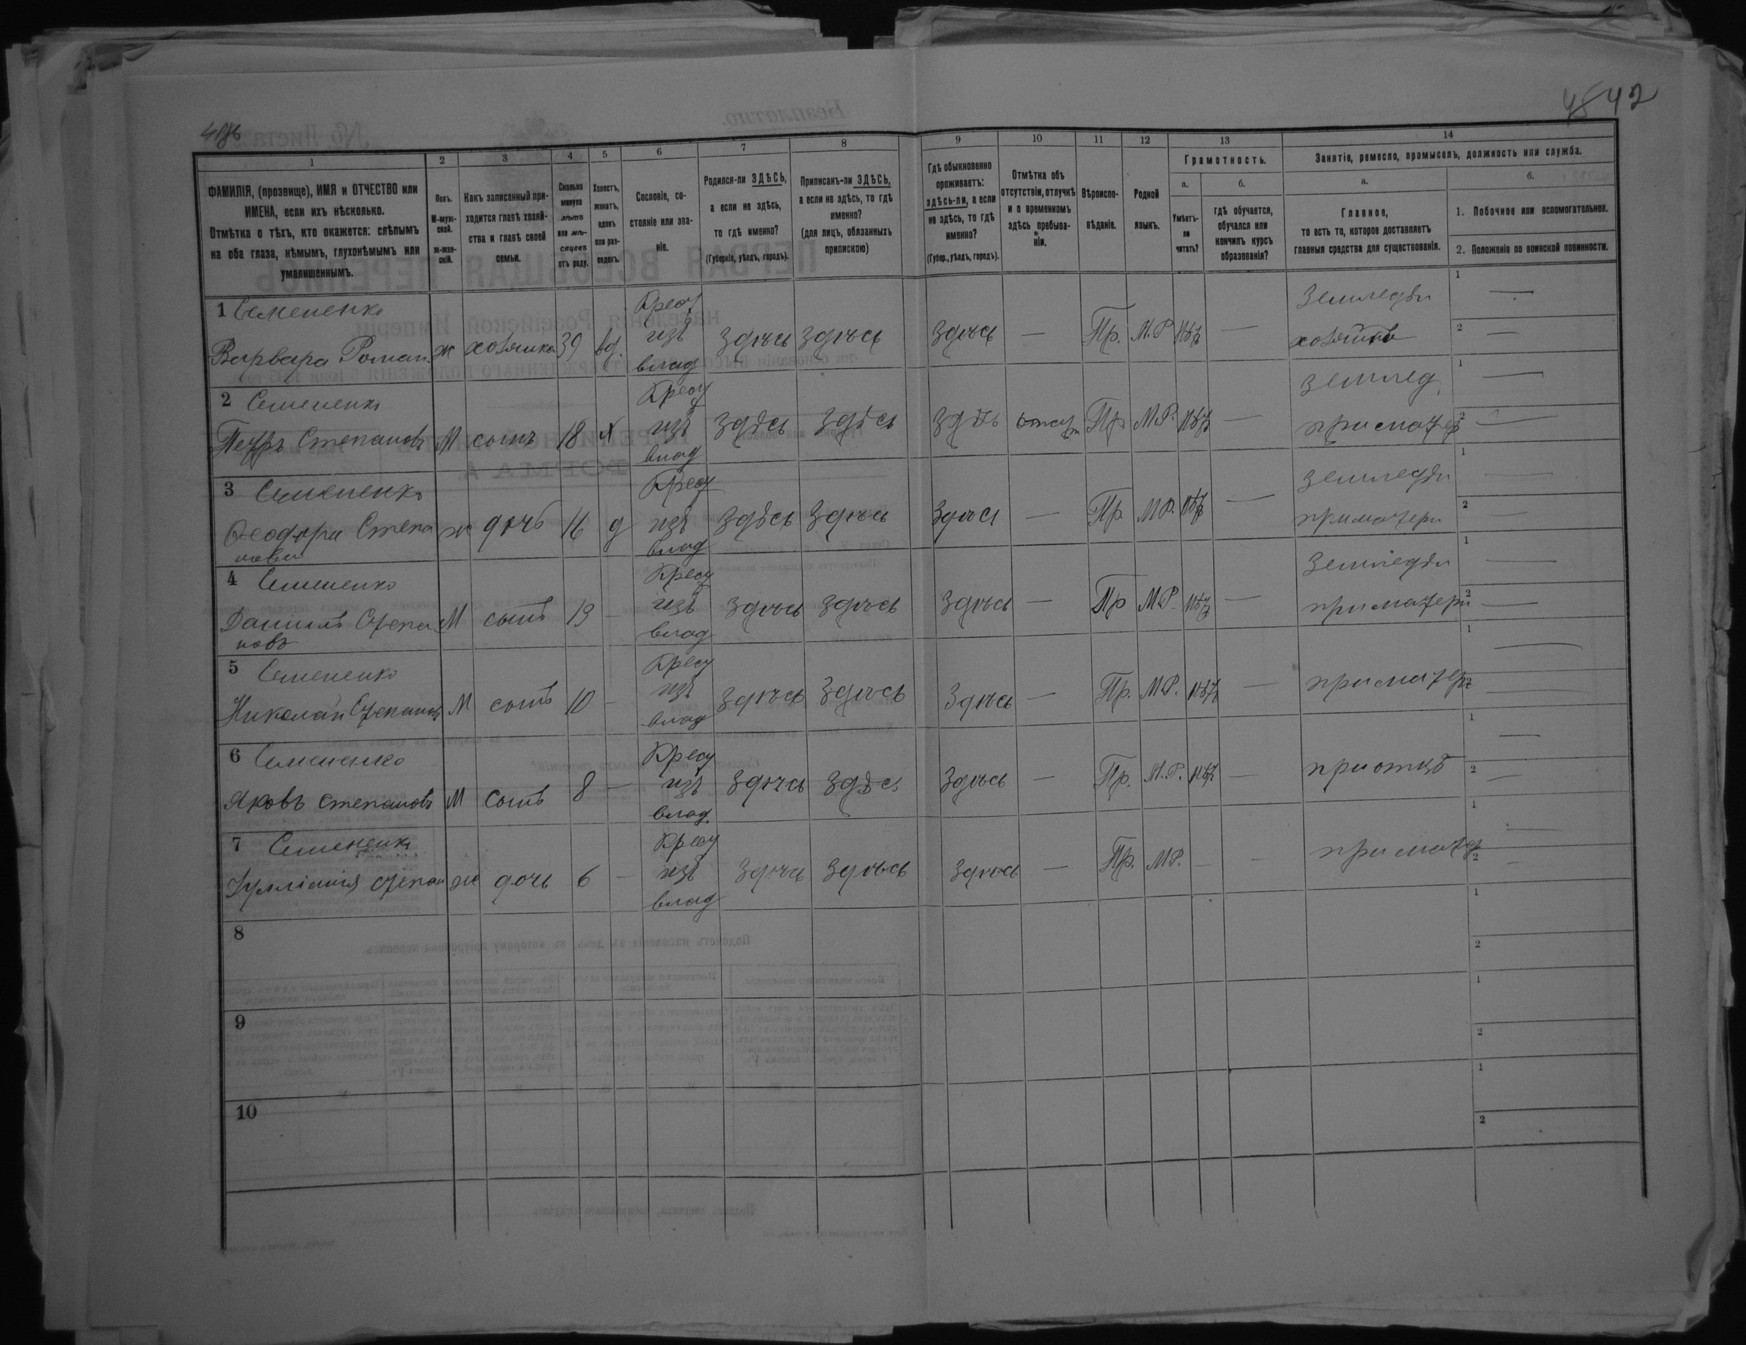 45 42
1 2 3 4 5 6 7 8 9 10 11 12 13 14
ФАМИЛІЯ, (прозвище), ИМЯ и ОТЧЕСТВО или
ИМЕНА, если ихъ нѣсколько.
Отмѣтка о тѣхъ, кто окажется: слѣпымъ
на оба глаза, нѣмымъ, глухонѣмымъ или
умалишеннымъ.
Полъ.
М-муж-
ской.
ж-жен-
скій.
Какъ записанный при-
ходится главѣ хозяй-
ства и главѣ своей
семьи.
Сколько
минуло
лѣтъ
или мѣ-
сяцевъ
отъ роду.
Холостъ,
женатъ,
вдовъ
или раз-
веденъ.
Сословіе, со-
стояніе или зва-
ніе.
Родился-ли ЗДѢСЬ,
а если не здѣсь,
то гдѣ именно?
(Губернія, уѣздъ, городъ).
Приписанъ-ли ЗДѢСЬ,
а если не здѣсь, то гдѣ
именно?
(для лицъ, обязанныхъ
припискою)
Гдѣ обыкновенно
проживаетъ:
здѣсь-ли, а если
не здѣсь, то гдѣ
именно?
(Губер., уѣздъ, городъ).
Отмѣтка объ
отсутствіи, отлучкѣ
и о временномъ
здѣсь пребыва-
ніи.
Вѣроиспо-
вѣданіе.
Родной
языкъ.
Грамотность.
а.
Умѣетъ-
ли
читать?
б.
гдѣ обучается,
обучался или
кончилъ курсъ
образованія?
Занятіе, ремесло, промыселъ, должность или служба.
а.
Главное,
то есть то, которое доставляетъ
главныя средства для существованія.
б.
1. Побочное или вспомогательное.
2. Положеніе по воинской повинности.
1 Семененко
Варвара Роман ж хозяйка 39 вд. Крест изъ влад здѣсь здѣсь здѣсь — Пр. М.Р. нѣт — Земледѣл хозяйка 1 — 2 —
2 Семененко
Петръ Степановъ М сынъ 18 х Крест изъ влад здѣсь здѣсь здѣсь Пр М.Р. нѣт — землед. при матер 1 — 2 —
3 Семененко
Феодора Степа
нова ж дочь 16 д Крест изъ влад здѣсь здѣсь здѣсь — Пр М.Р. нѣт — земледѣл при матери 1 — 2 —
4 Семененко
Данилъ Степа
новъ М сынъ 13 — Крест изъ влад здѣсь здѣсь здѣсь — Пр М.Р. нѣт — земледѣл при матери 1 — 2 —
5 Семененко
Николай Степановъ М сынъ 10 — Крест изъ влад здѣсь здѣсь здѣсь — Пр. М.Р. нѣт — при матер 1 — 2 —
6 Семененко
Яковъ Степановъ М сынъ 8 — Крест изъ влад. здѣсь здѣсь здѣсь — Пр. М.Р. нѣт — при отцѣ 1 — 2 —
7 Семененко
Степан ж дочь 6 — Крест изъ влад здѣсь здѣсь здѣсь — Пр. М.Р. — — при матер 1 — 2 —
8 1 2
9 1 2
10 1 2